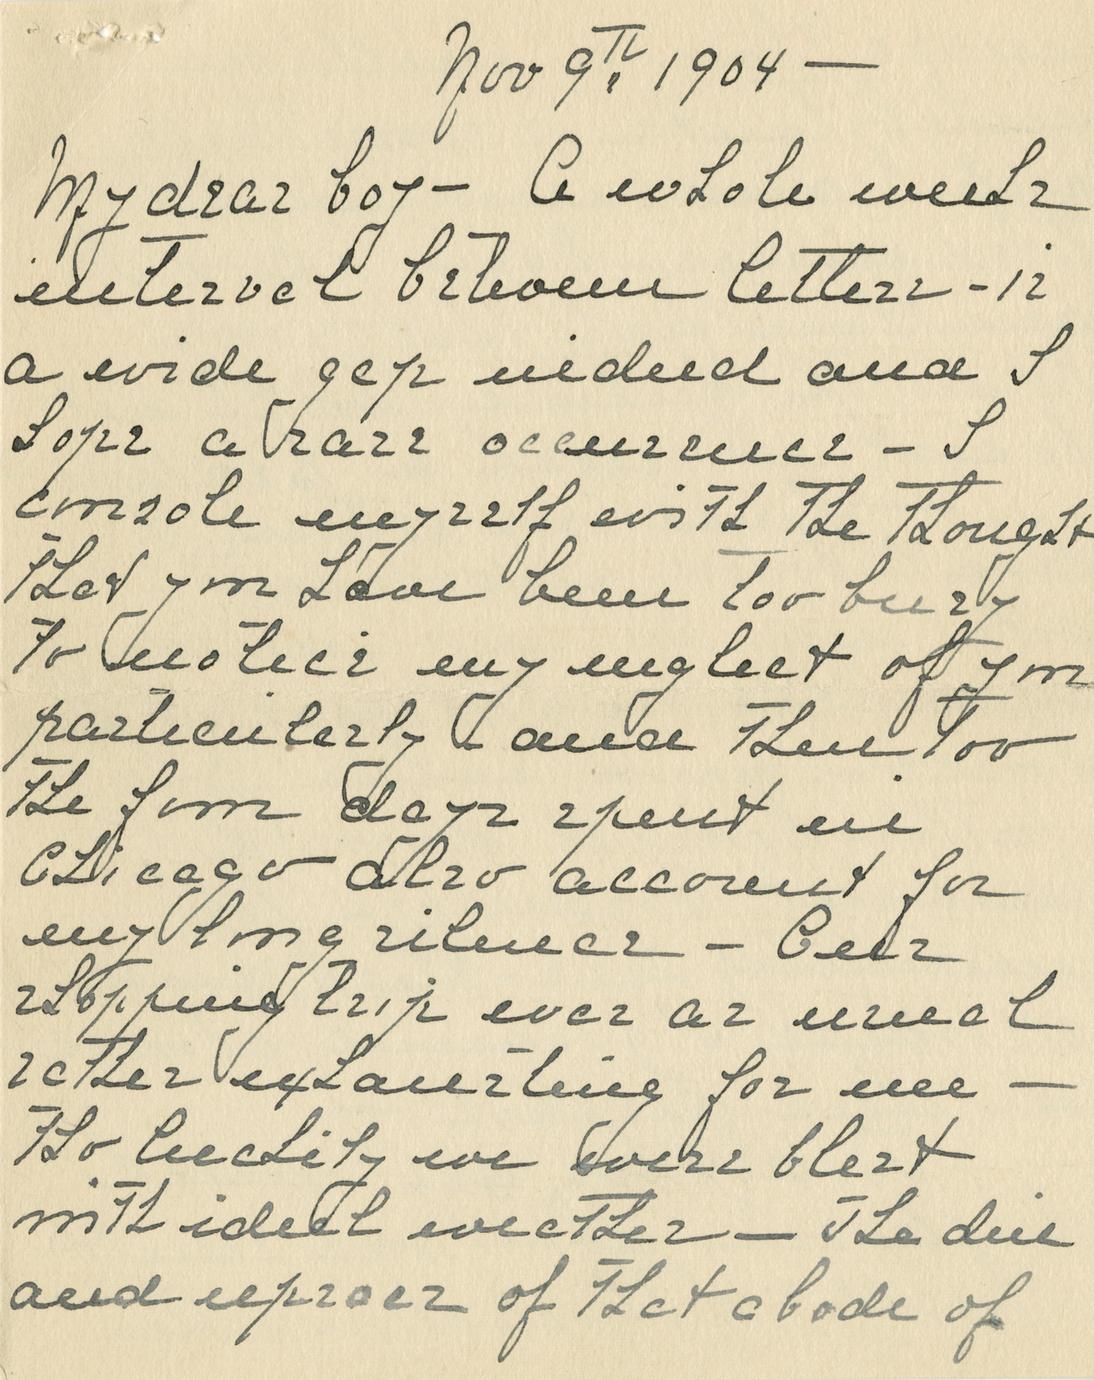 Nov 9th. 1904 —
My dear boy — A whole week
interval between letters - is
a wide gap indeed and I
hope a rare occurrence - I
console myself with the thought
that you have been too busy
to notice my neglect of you
particularly - and then too
the four days spent in
Chicago also account for
my long silence - Our
shopping trip was as usual
rather exhausting for me —
tho luckily we were blest
with ideal weather — The din
and uproar of that abode of